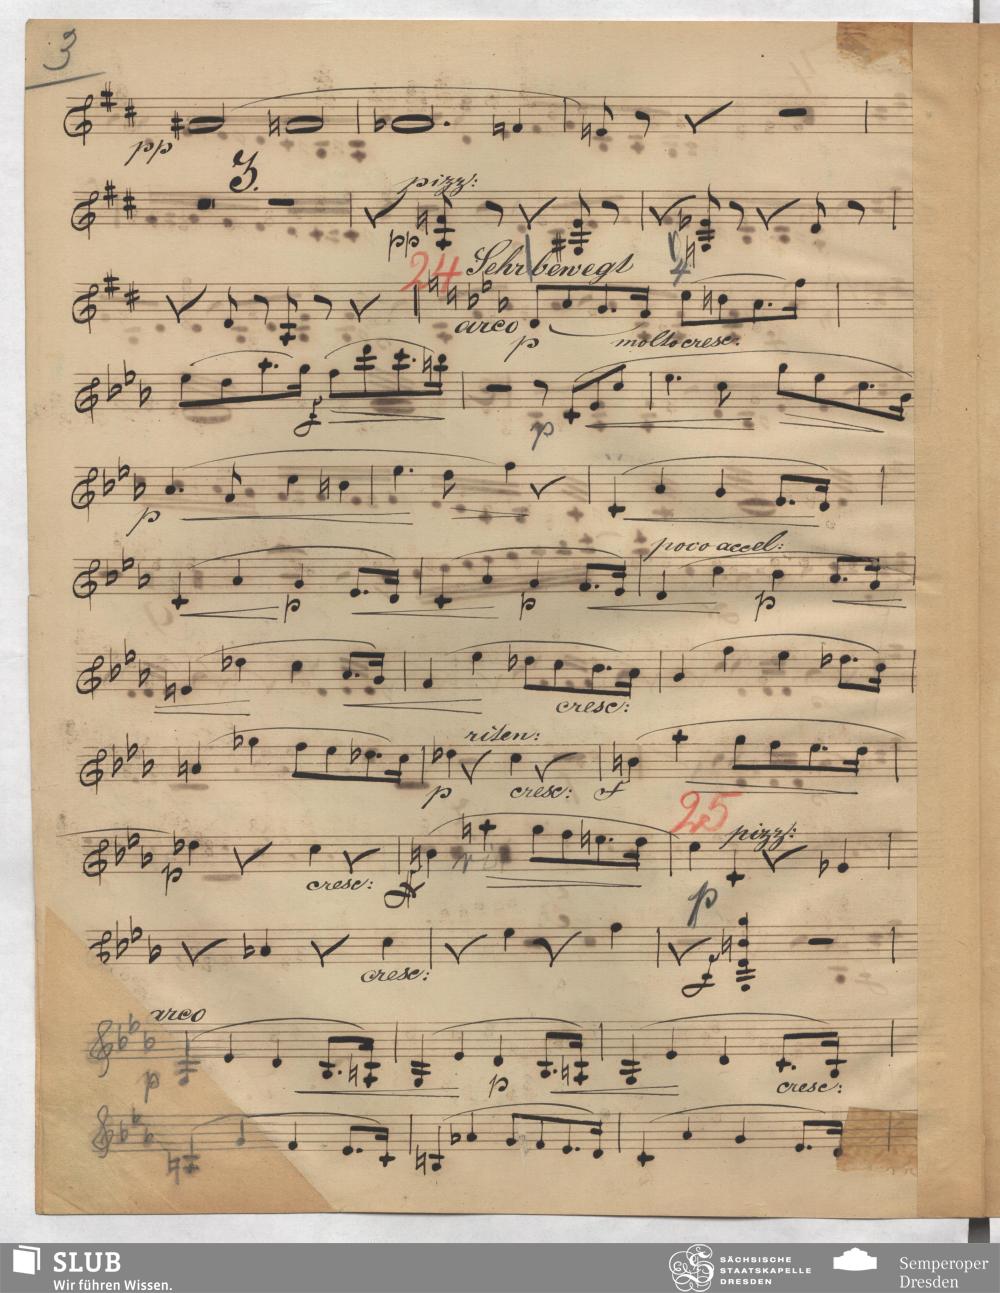 3
pp
3.
pizz:
pp
24 Sehr bewegt
4
arco p molto cresc.
f p
p
poco accel:
p p p
cresc:
riten:
p cresc: f
25 pizz:
p cresc: ff p
cresc: f
arco
p p cresc:
SLUB
Wir führen Wissen.
SÄCHSISCHE
STAATSKAPELLE
DRESDEN
Semperoper
Dresden